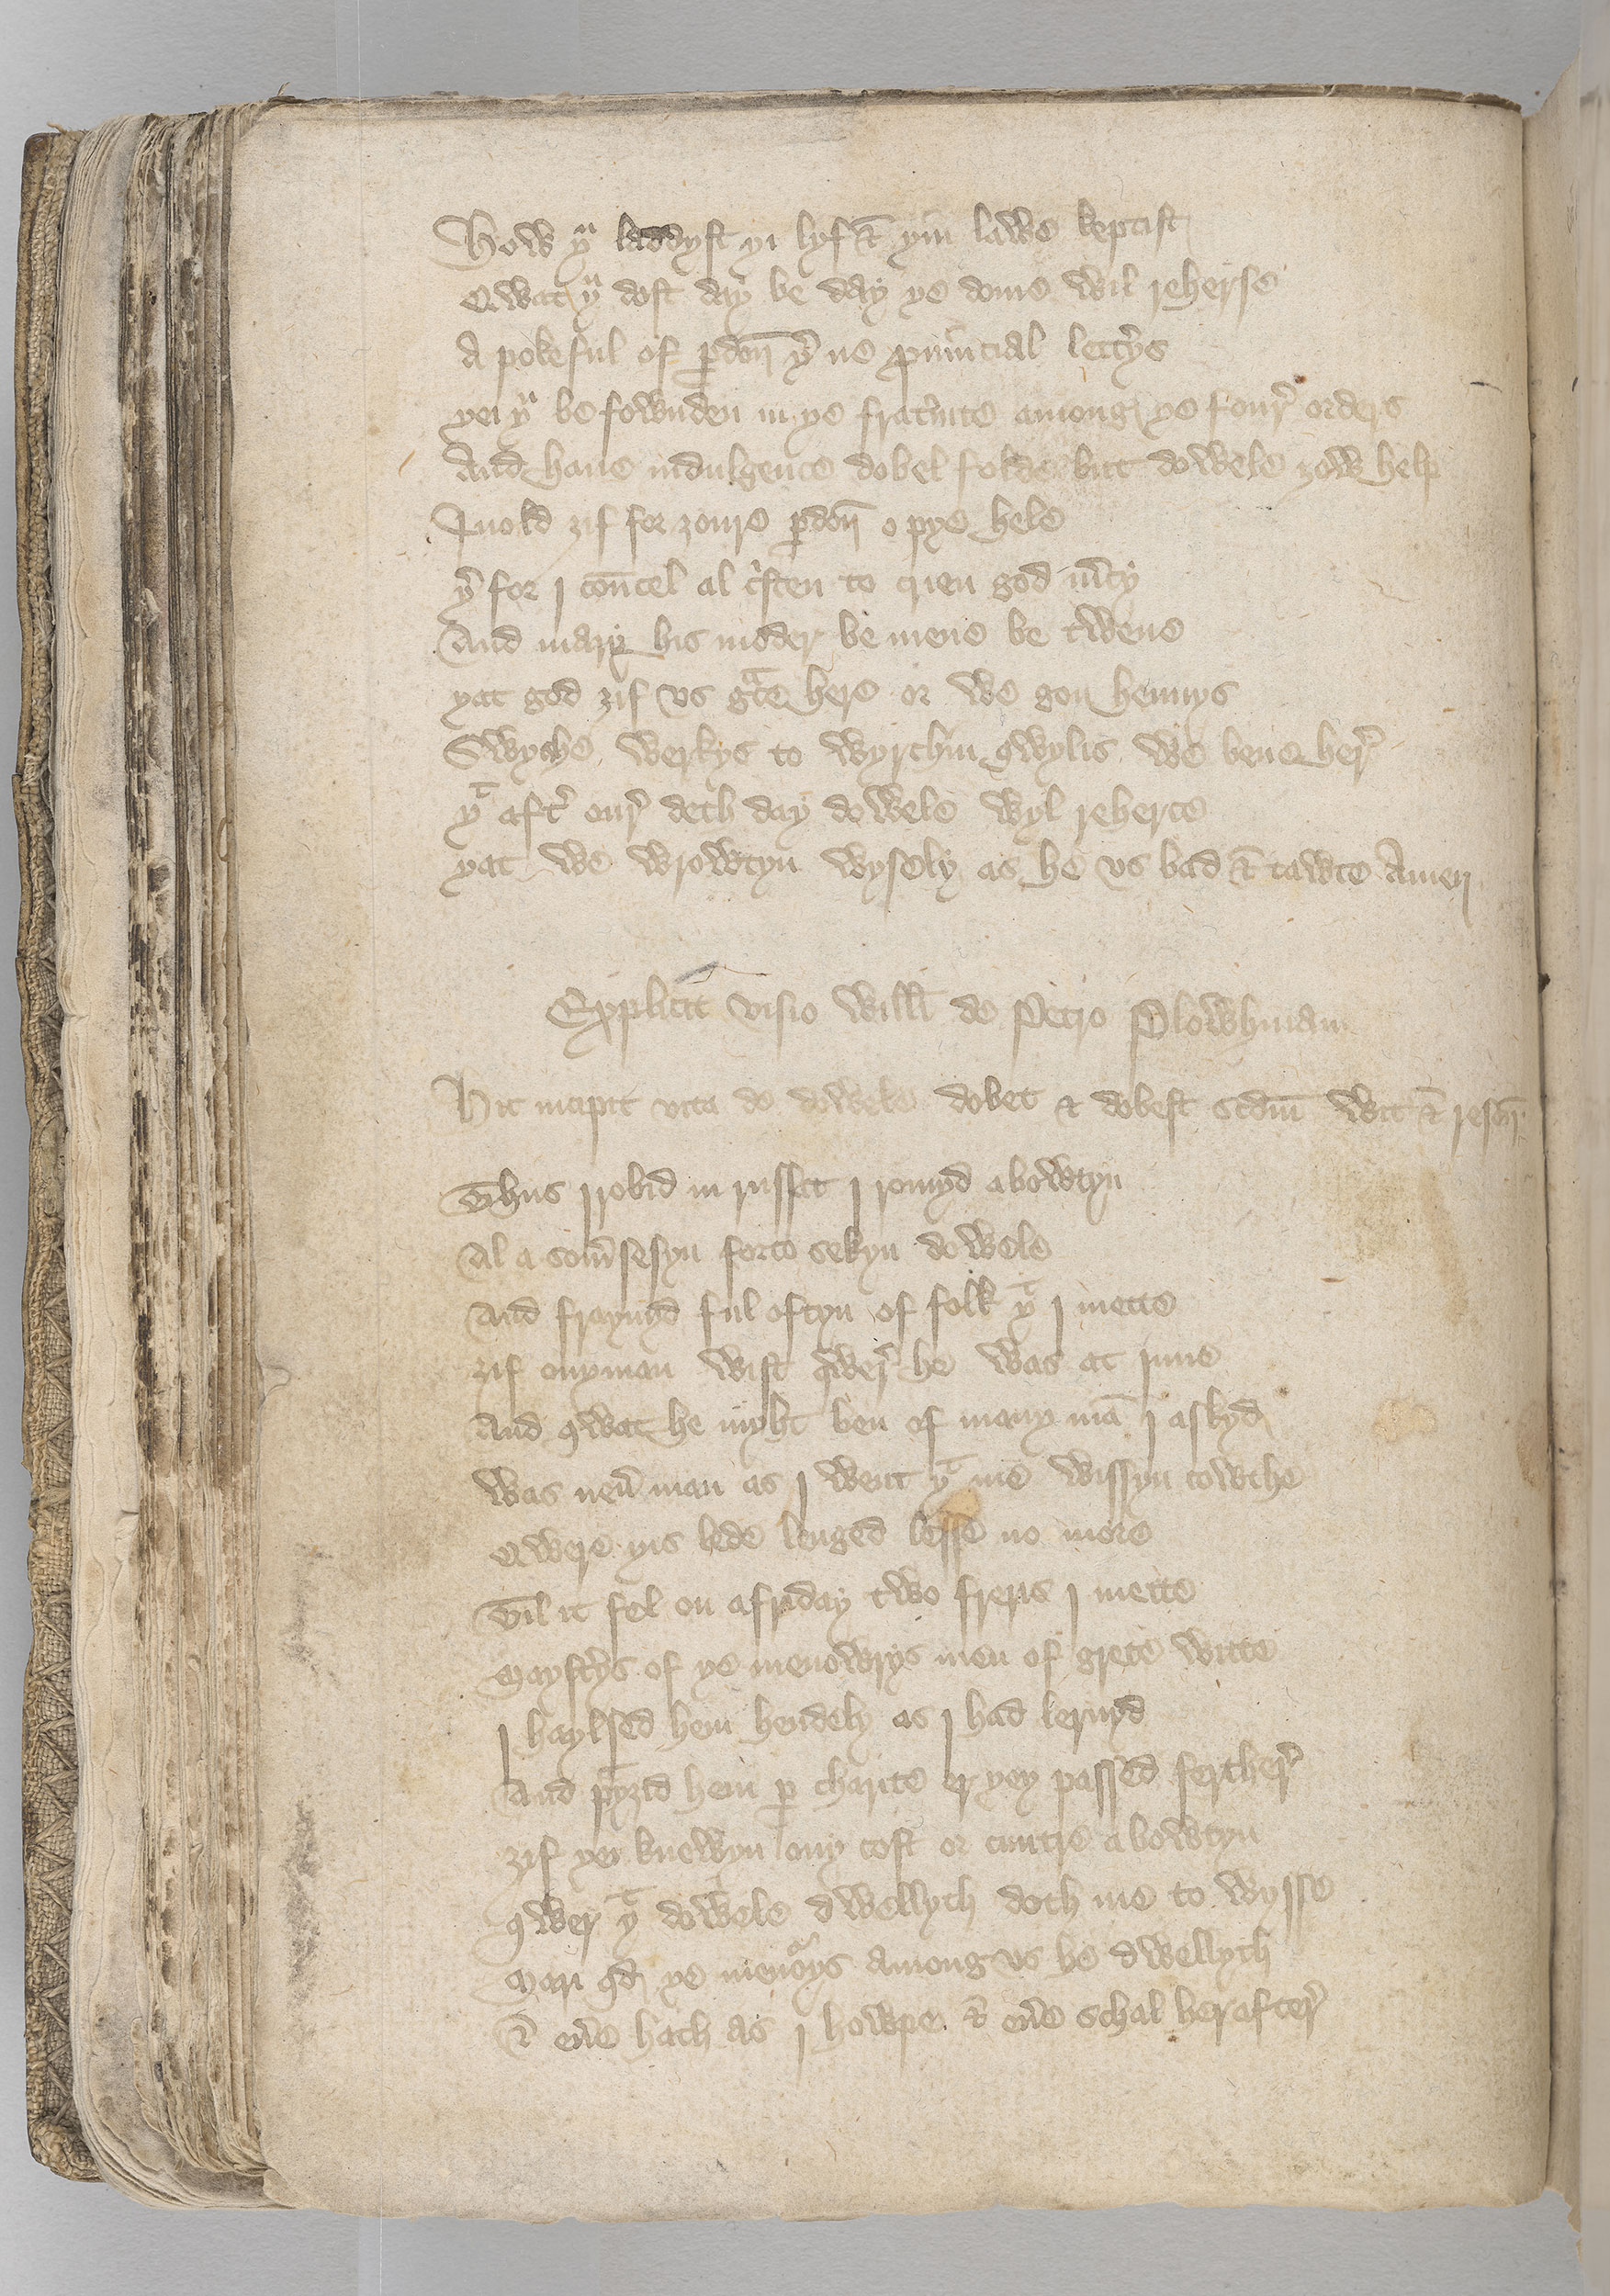 How yu laddyst yi lyf & yin lawe keptist
Qwat yu dost day be day ye dome wil reherse
A pokeful of pardon yer ne prouincial letterys
yei yu be fownden in ye fraternite among ye four orders
And haue indulgence dobel folde but dowele zow help
I nold zif for zoure pardon o pye hele
yer for I councel al cristen to crien god mercy
And mary his moder be mene be twene
yat god zif vs grace here or we gon hennys
Swyche werkys to wyrchin qwylis we bene here
yat after our deth day dowele wyl reherce
yat we wrowtyn wysely as he vs bad & tawte Amen
Explicit visio Willi de Petro Plowhman
Hic incipit vita de dowele dobet & dobest secundum wit & reson
Thus I robid in russet I romyd abowtyn
Al a somer sesyn forto sekyn dowele
And frayngd ful oftyn of folk yat I mette
zif ony man wist qwer he was at inne
And qwat he myht ben of many man I askyd
Was neuer man as I went yat me wissyn cowthe
Qwere yis lede lenged lesse no more
Til it fel on a friday two freris I mette
Maystyrs of ye menowrys men of grete witte
I haylsed hem hendely as I had lernyd
And prayzid hem per charite er yey passed ferthere
zif yei knewyn ony cost or cuntre abowtyn
qwer yat dowele dwellyth doth me to wysse
Mari quod ye menorys among vs he dwellyth
& euere hath as I howpe & euere schal her after